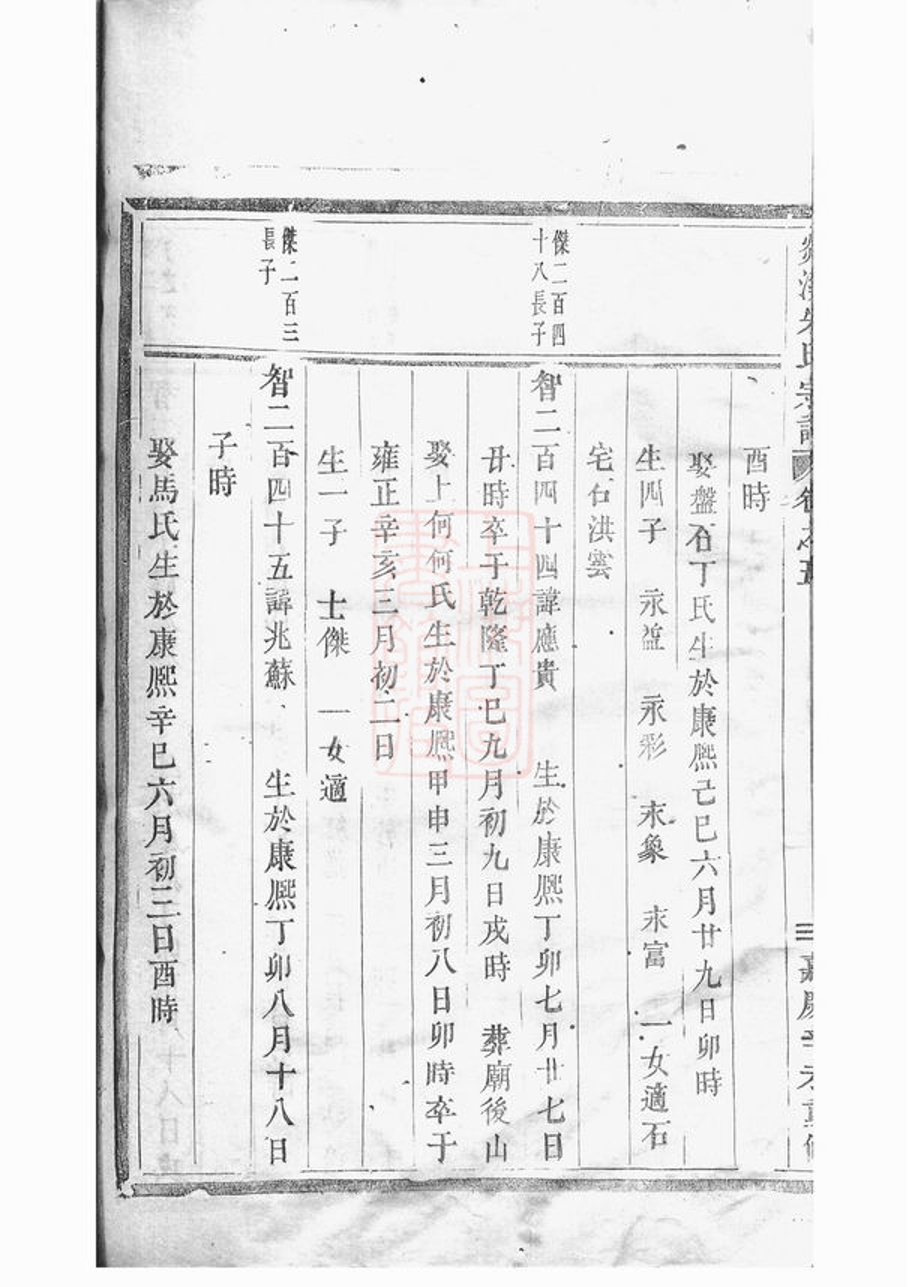 朱氏宗譜 卷之五 三 嘉慶 重修
酉時
娶盤石丁氏生於康熙己巳六月廿九日卯時
生四子 永益 永彩 永象 永富 一女適石
宅石洪雲
傑二百四
十八長子
智二百四十四諱應貴 生於康熙丁卯七月廿七日
丑時卒于乾隆丁巳九月初九日戌時 葬廟後山
娶上何何氏生於康熙甲申三月初八日卯時卒于
雍正辛亥三月初二日
生一子 士傑 一女適
傑二百三
長子
智二百四十五諱兆蘇 生於康熙丁卯八月十八日
子時
娶馬氏生於康熙辛巳六月初三日酉時